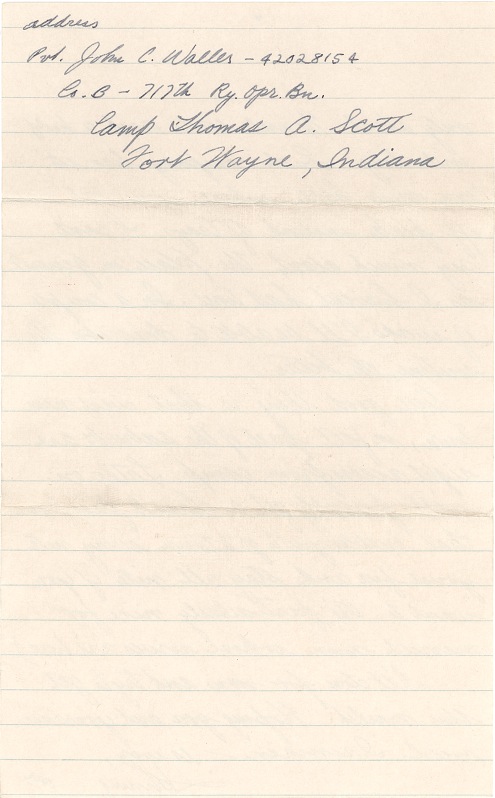 address
Pvt. John C. Waller - 42028154
Co. B - 717th Ry. Opr. Bn.
Camp Thomas A. Scott
Fort Wayne, Indiana